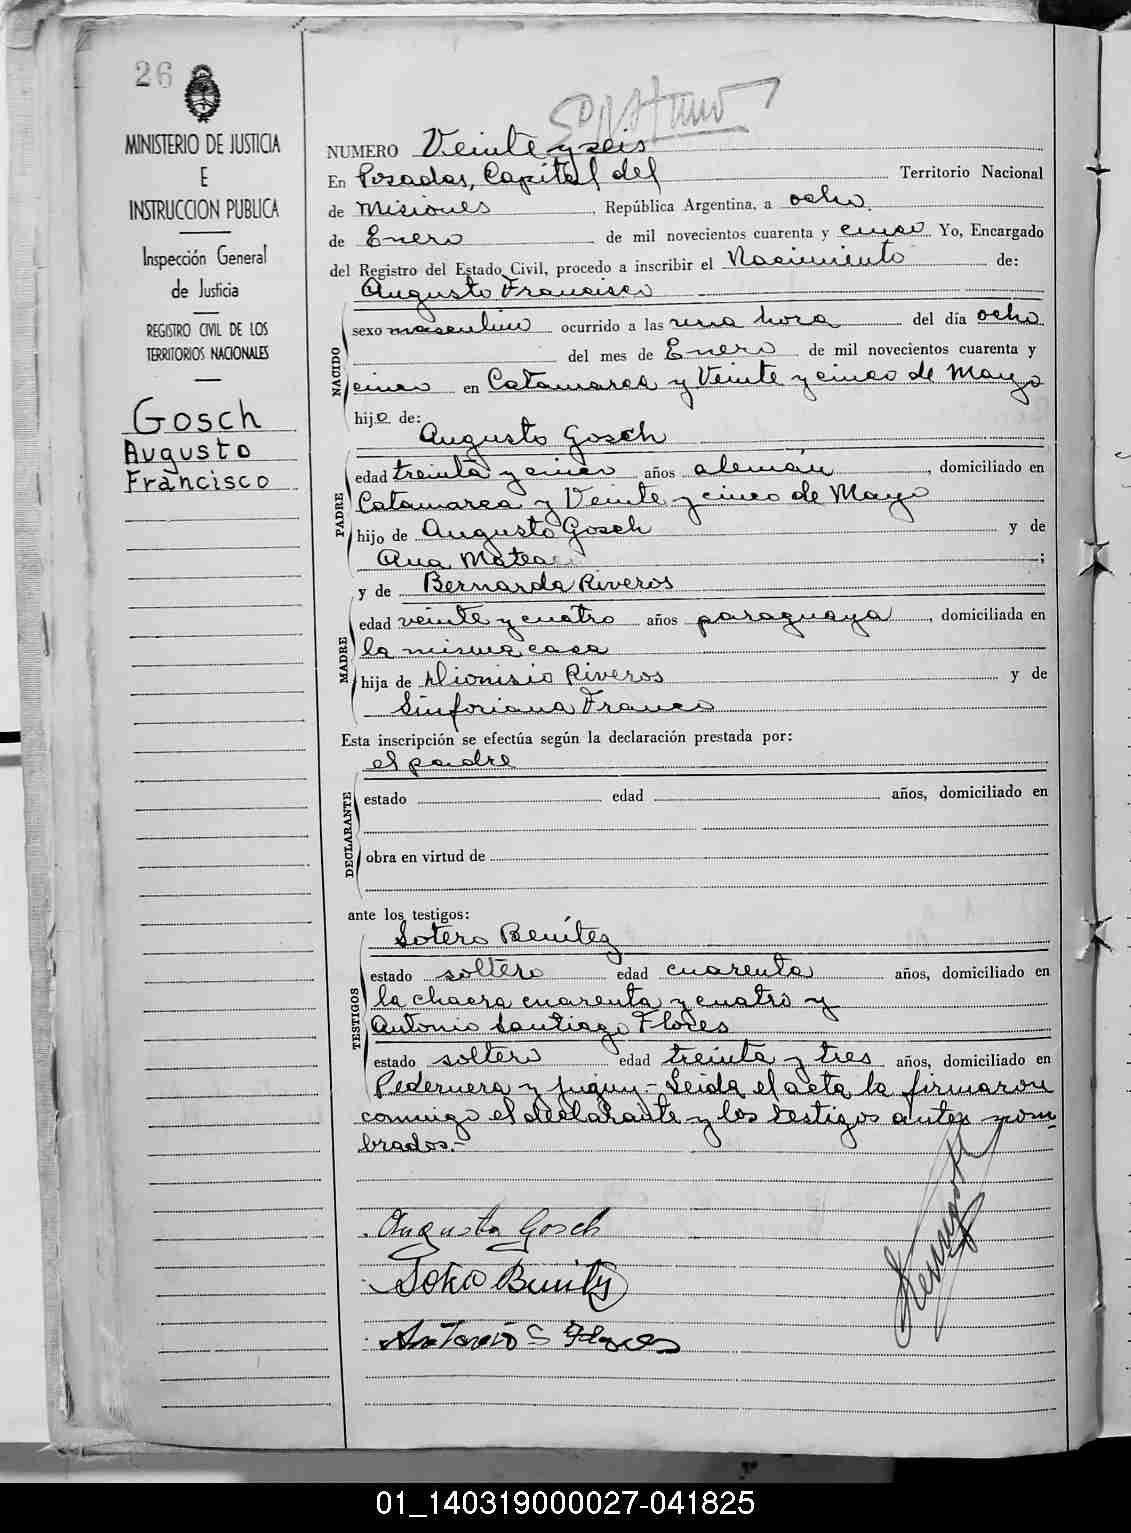 26
MINISTERIO DE JUSTICIA
E
INSTRUCCION PUBLICA
Inspección General
de Justicia
REGISTRO CIVIL DE LOS
TERRITORIOS NACIONALES
Gosch
Augusto
Francisco
NUMERO Veinte y seis
En Posadas, Capital del Territorio Nacional
de Misiones, República Argentina, a ocho
de Enero de mil novecientos cuarenta y cinco Yo, Encargado
del Registro del Estado Civil, procedo a inscribir el Nacimiento de:
Augusto Francisco
NACIDO
sexo masculino ocurrido a las una hora del día ocho
del mes de Enero de mil novecientos cuarenta y
cinco en Catamarca y Veinte y cinco de Mayo
hijo de:
Augusto Gosch
PADRE
edad treinta y cinco años alemán, domiciliado en
Catamarca y Veinte y cinco de Mayo
hijo de Augusto Gosch y de
Ana Matea;
y de Bernarda Riveros
MADRE
edad veinte y cuatro años paraguaya, domiciliada en
la misma casa
hija de Dionisio Riveros y de
Sinforiana Franco
Esta inscripción se efectúa según la declaración prestada por:
el padre
DECLARANTE
estado edad años, domiciliado en
obra en virtud de
ante los testigos:
Sotero Benítez
TESTIGOS
estado soltero edad cuarenta años, domiciliado en
la chacra cuarenta y cuatro y
Antonio Santiago Flores
estado soltero edad treinta y tres años, domiciliado en
Pedernera y Jujuy - Leida el acta la firmaron
conmigo el declarante y los testigos antes nom-
brados.-
Augusto Gosch
Sotero Benitez
Antonio S Flores
01_140319000027-041825